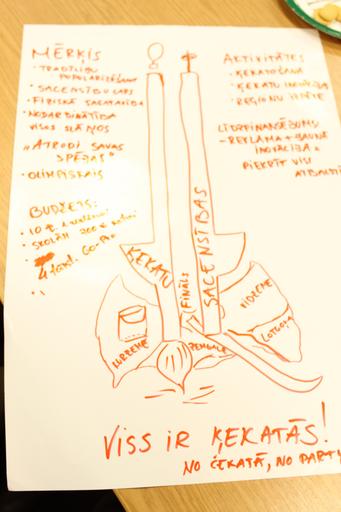 MĒRĶIS
• TRADĪCIJU
POPULARIZĒŠANA
• SACENSĪBU GARS
• FIZISKĀ SAGATAVOTĪBA
• NODARBINĀTĪBA
VISOS SLĀŅOS
„ATRODI SAVAS
SPĒJAS"
• OLIMPISKAIS
BUDŽETS:
• 10 €
• SKOLĀM 200 €
4
AKTIVITĀTES
• ĶEKATOŠANA
• ĶEKATU
• REĢIONU IZLASE
LĪDZFINANSĒJUMS
- REKLAMA + JAUNĀ
INOVĀCIJA =
PIEKRĪT VISU
ATBALSTĪT
ĶEKATU
(FINĀLS)
SACENSĪBAS
KURZEME
ZEMGALE
VIDZEME
LATGALE
VISS IR ĶEKATĀS!
NO ČEKATĀ, NO PARTY